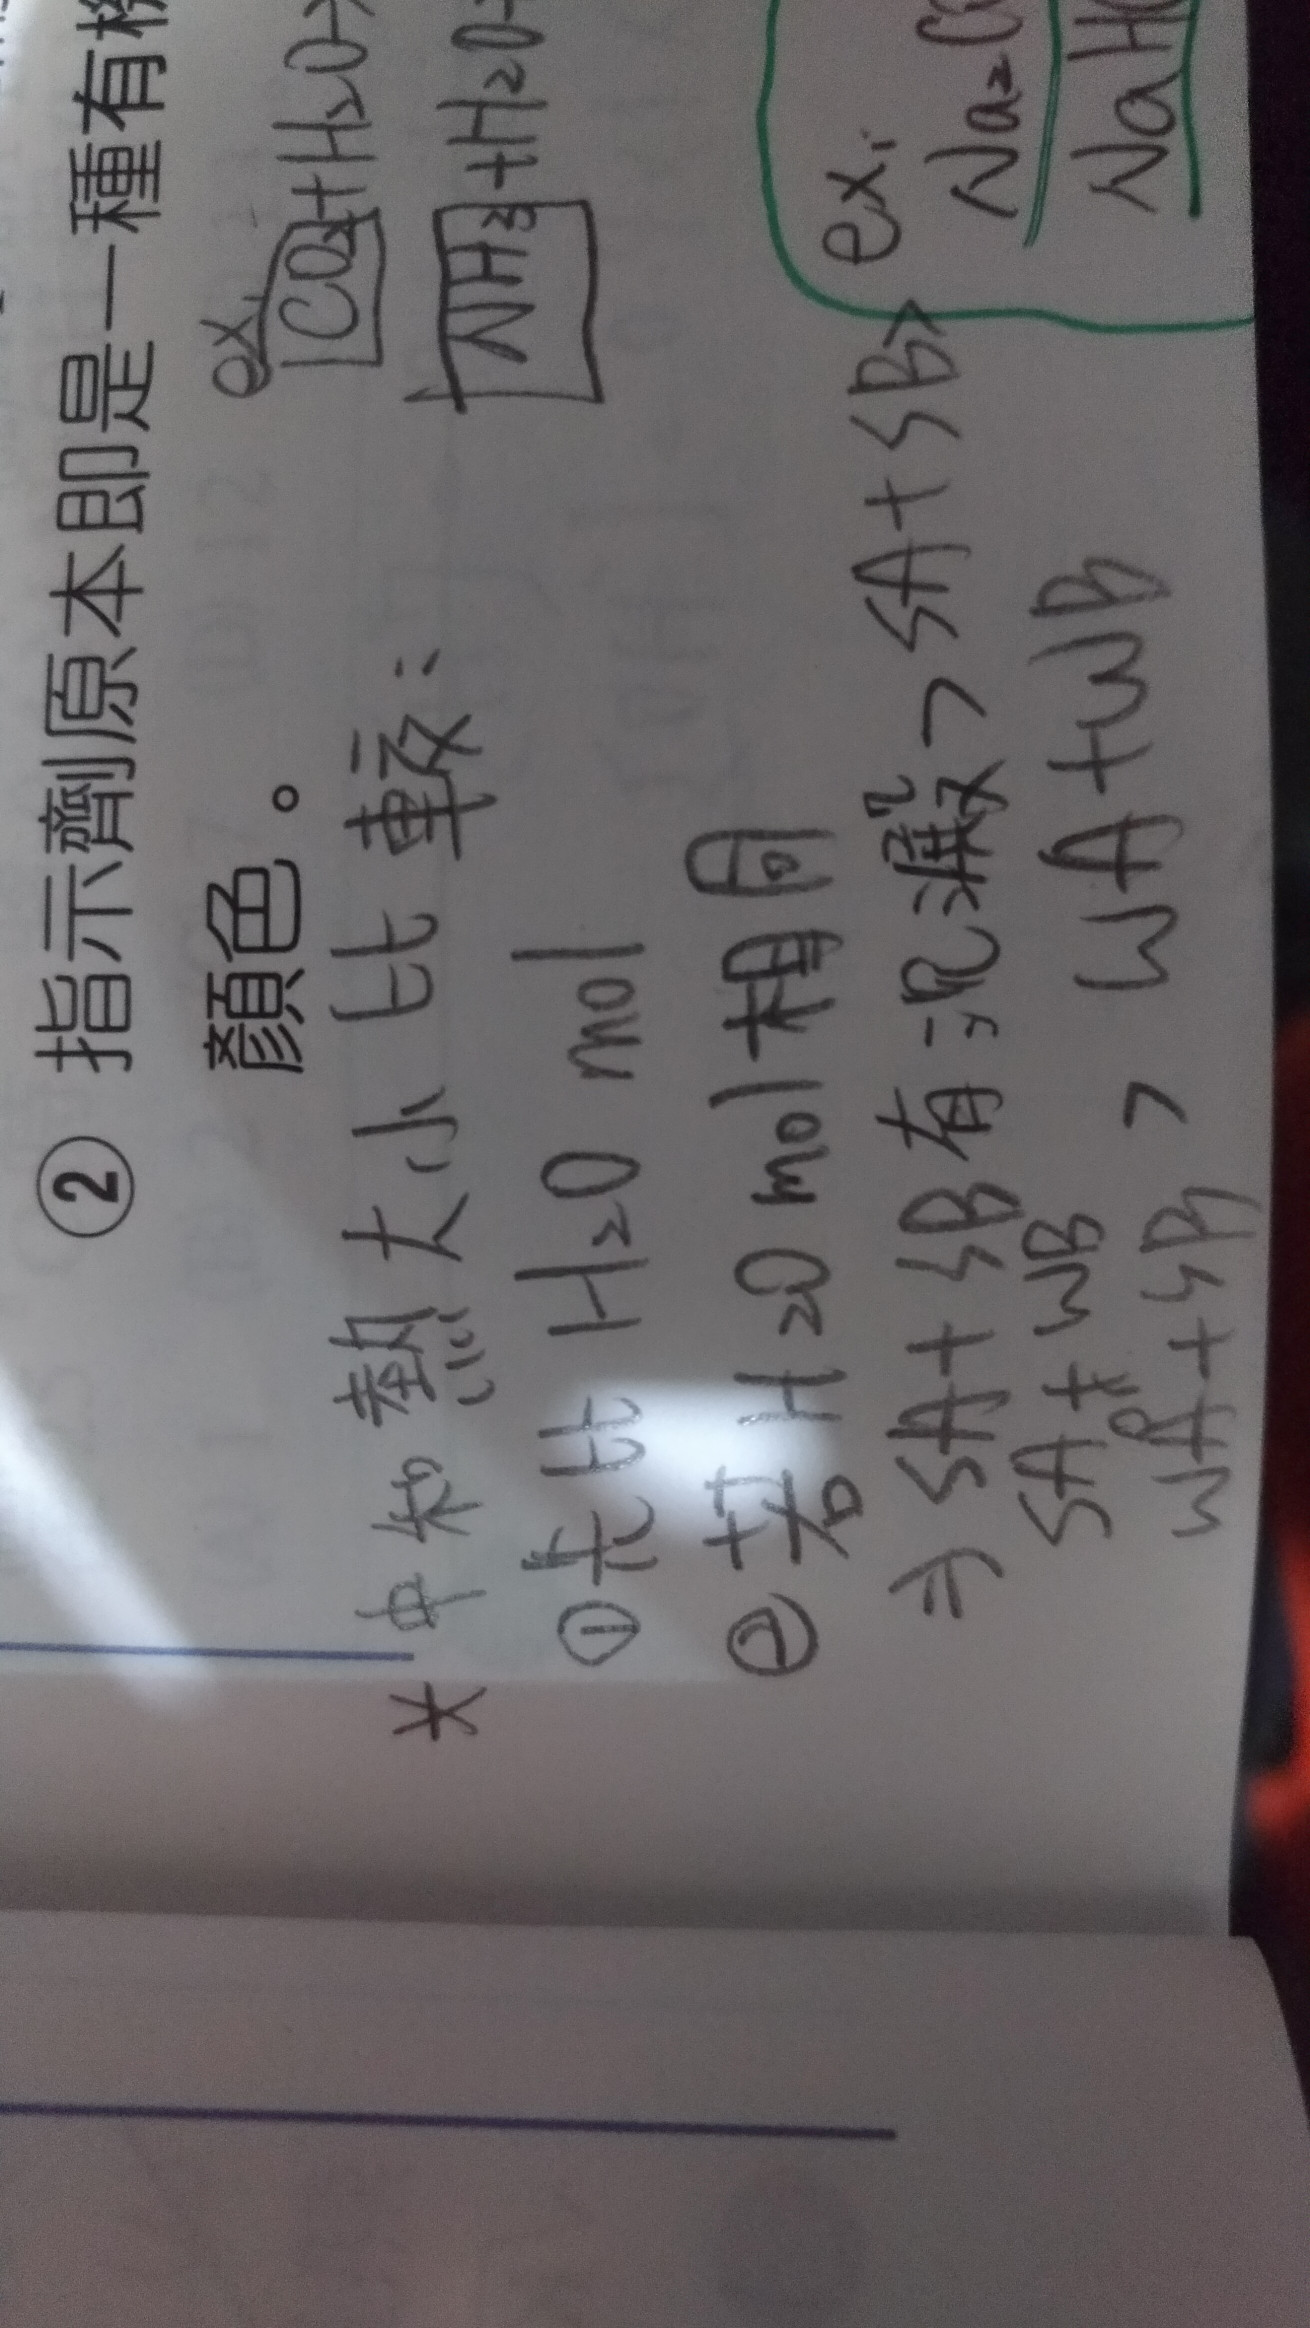 ② 指示劑原本即是一種有機
顏色。
ex.
CO₂+H₂O→
NH₃+H₂O
* 中和熱大小比較：
①先比 H₂O mol
②若 H₂O mol 相同
⇒ SA+SB有沉澱 > SA+SB >
SA+WB
or
WA+SB > WA+WB
ex.
Na₂C
NaHC